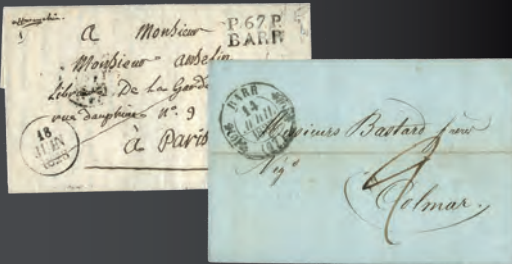 P.67.P.
BARR
a Monsieur
Monsieur anselin
Libraire De La Garde
rue dauphine n.º 9
à Paris
18
JUIN
BARR
14
(67)
Messieurs Bastard frères
Nég.ts
Colmar.